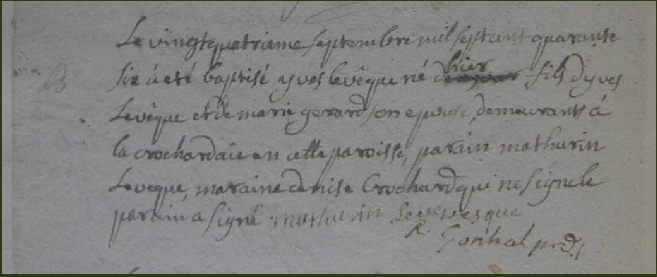 Le vingt quatrieme septembre mil sept cent quarante
B
six a eté baptisé yves levêque né hier fils d'yves
Levêque et de marie gerard son epouse, demeurants à
la crochardaie en cette paroisse, parain mathurin
Leveque, maraine denise Crochard qui ne signe le
parain a signé mathurin levesque